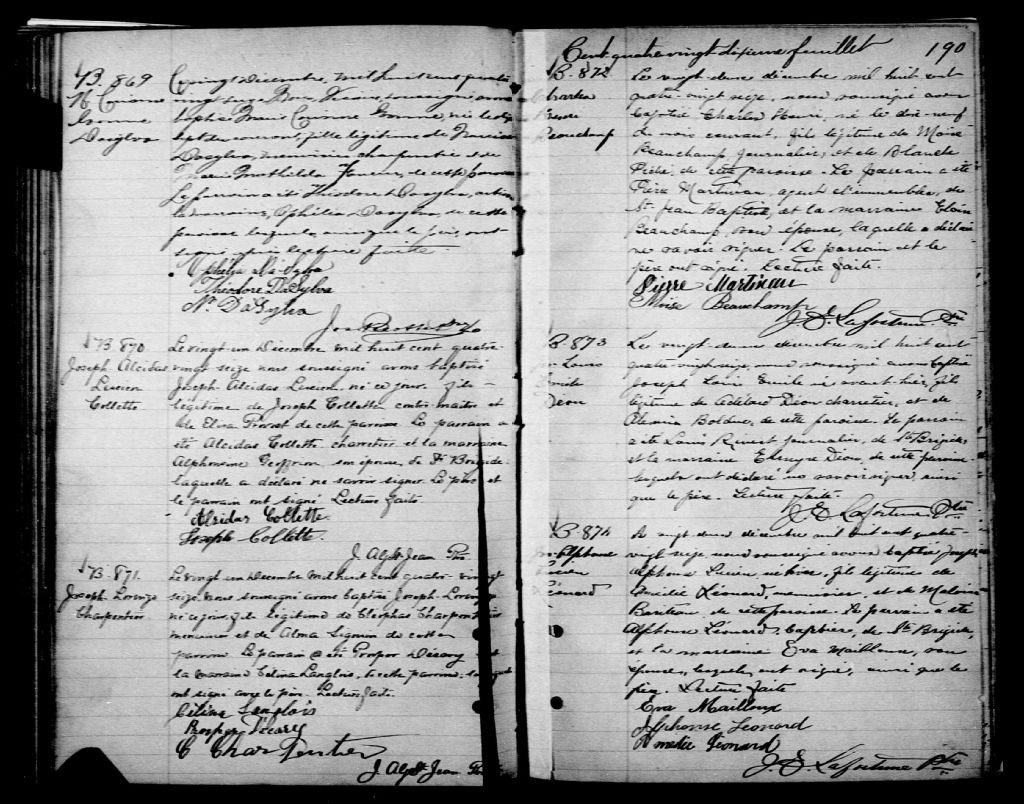 B. 869
M. Corinne
Yvonne
Dasylva
Ce vingt Décembre, mil huit cent quatre
vingt seize
baptisé Marie Corinne Yvonne, née le dix
sept du courant, fille légitime de Narcisse
Dasylva, menuisier charpentier et de
Marie Mathilda de cette paroisse
Le parrain a été Théodore Dasylva,
la marraine, Ophélia Dasylva, de cette
paroisse lesquels, ainsi que le père, ont
signé, lecture faite
Ophelia Da Sylva
Théodore DaSylva
N. DaSylva
B. 870.
Joseph Alcidas
Lucien
Collette
Le vingt-un Décembre mil huit cent quatre-
vingt seize nous soussigné avons baptisé
Joseph Alcidas Lucien né ce jour fils
légitime de Joseph Collette contre-maitre et
de Elisa de cette paroisse Le parrain a
été Alcidas Collette, charretier et la marraine
Alphonsine Geoffrion, son épouse, de St Brigide
laquelle a déclaré ne savoir signer. Le père et
le parrain ont signé Lecture faite
Alcidas Collette.
Joseph Collette.
J. Alph. Jean Ptre
B. 871.
Joseph Lorenzo
Charpentier
Le vingt-un Décembre mil huit cent quatre-vingt
seize nous soussigné avons baptisé Joseph Lorenzo
né ce jour, fils légitime de Cléophas Charpentier
menuisier et de Alma Signori de cette
paroisse Le parrain a été Prosper Décary et
la marraine Célina Langlois, de cette paroisse lesquels
ont signé avec le père. Lecture faite.
Célina Langlois
Prosper Décary
C Charpentier
J. Alph. Jean Ptre
Cent quatre vingt dixième feuillet 190
B. 872
Charles
Henri
Beauchamp
Le vingt deux décembre mil huit cent
quatre vingt seize, nous soussigné avons
baptisé Charles Henri, né le dix neuf
du mois courant, fils légitime de Moïse
Beauchamp, journalier, et de Blanche
Piché, de cette paroisse. Le parrain a été
Pierre Martineau, agent d'immeubles, de
St Jean Baptiste, et la marraine Eloïse
Beauchamp, son épouse, laquelle a déclaré
ne savoir signer. Le parrain et le
père ont signé. Lecture faite.
Pierre Martineau
Moise Beauchamp
J. E. Lafortune Ptre
B. 873
Louis
Emile
Dion
Le vingt deux décembre mil huit cent
quatre vingt seize, nous soussigné avons baptisé
Joseph Louis Emile né avant-hier, fils
légitime de Adélard Dion charretier, et de
Alexina Bolduc, de cette paroisse. Le parrain
a été Louis Rivest journalier, de Ste Brigide,
et la marraine Dion, de cette paroisse
lesquels ont déclaré ne savoir signer, ainsi
que le père. Lecture faite.
J. E. Lafortune Ptre
B. 874
Alphonse
Lucien
Léonard
Le vingt deux décembre mil huit cent quatre
vingt seize, nous soussigné avons baptisé Joseph
Alphonse Lucien né hier, fils légitime de
Amédée Léonard, menuisier, et de Malvina
de cette paroisse. Le parrain a été
Alphonse Léonard, barbier, de Ste Brigide,
et la marraine Eva Mailloux, son
épouse, lesquels ont signé, ainsi que le
père. Lecture faite
Eva Mailloux
Alphonse Leonard
Amedée Léonard
J. E. Lafortune Ptre